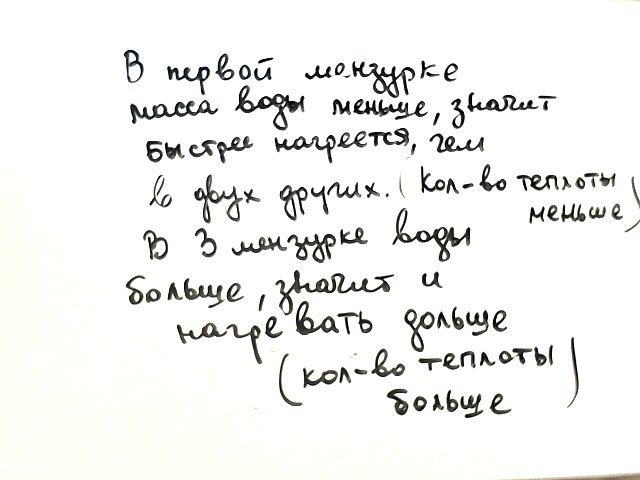 В первой мензурке
масса воды меньше, значит
быстрее нагреется, чем
в двух других. (Кол-во теплоты
меньше)
В 3 мензурке воды
больше, значит и
нагревать дольше
(кол-во теплоты
больше)